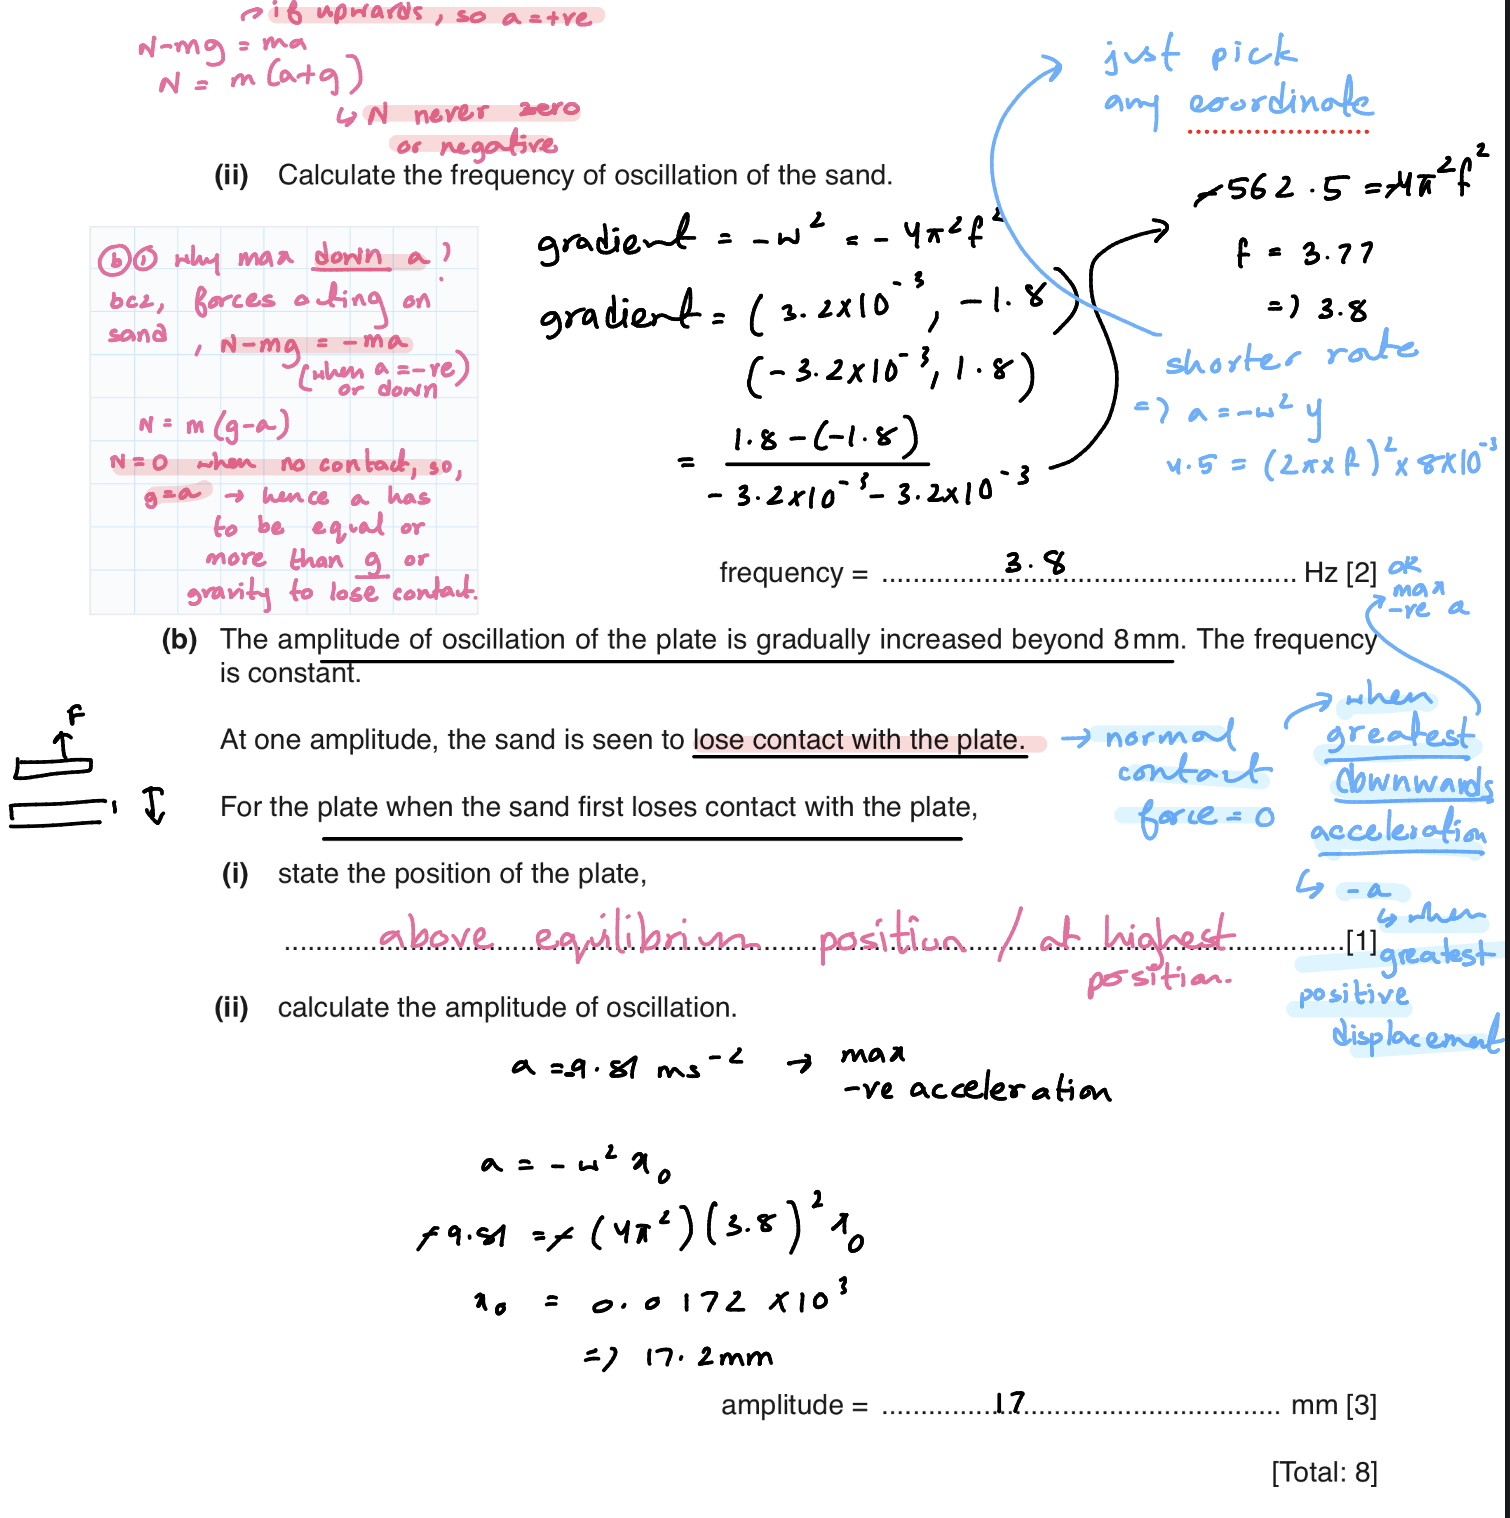 ↷ if upwards, so a = +ve
N-mg = ma
N = m(a+g)
↳ N never zero
or negative
just pick
any coordinate
(ii) Calculate the frequency of oscillation of the sand.
gradient = -w² = -4π²f²
gradient = (3.2x10⁻³, -1.8)
(-3.2x10⁻³, 1.8)
= 1.8-(-1.8)
-3.2x10⁻³ - 3.2x10⁻³
-562.5 = -4π²f²
f = 3.77
=> 3.8
shorter rate
=> a = -w² y
4.5 = (2πx f)² x 8x10⁻³
b i why max down a?
bcz, forces acting on
sand, N-mg = -ma
(when a = -re)
or down
N = m(g-a)
N=0 when no contact, so,
g=a → hence a has
to be equal or
more than g or
gravity to lose contact.
frequency = ........ 3.8 ........ Hz [2]
or
max
-re a
(b) The amplitude of oscillation of the plate is gradually increased beyond 8mm. The frequency
is constant.
F
At one amplitude, the sand is seen to lose contact with the plate.
→ normal
contact
force = 0
→ when
greatest
downwards
acceleration
↳ -a
↳ when
greatest
positive
displacement
For the plate when the sand first loses contact with the plate,
(i) state the position of the plate,
above equilibrium position / at highest
position.
[1]
(ii) calculate the amplitude of oscillation.
a = -9.81 ms⁻² → max
-ve acceleration
a = -w² x₀
-9.81 = -(4π²)(3.8)² x₀
x₀ = 0.0172 x10³
=> 17.2mm
amplitude = ........ 17 ........ mm [3]
[Total: 8]